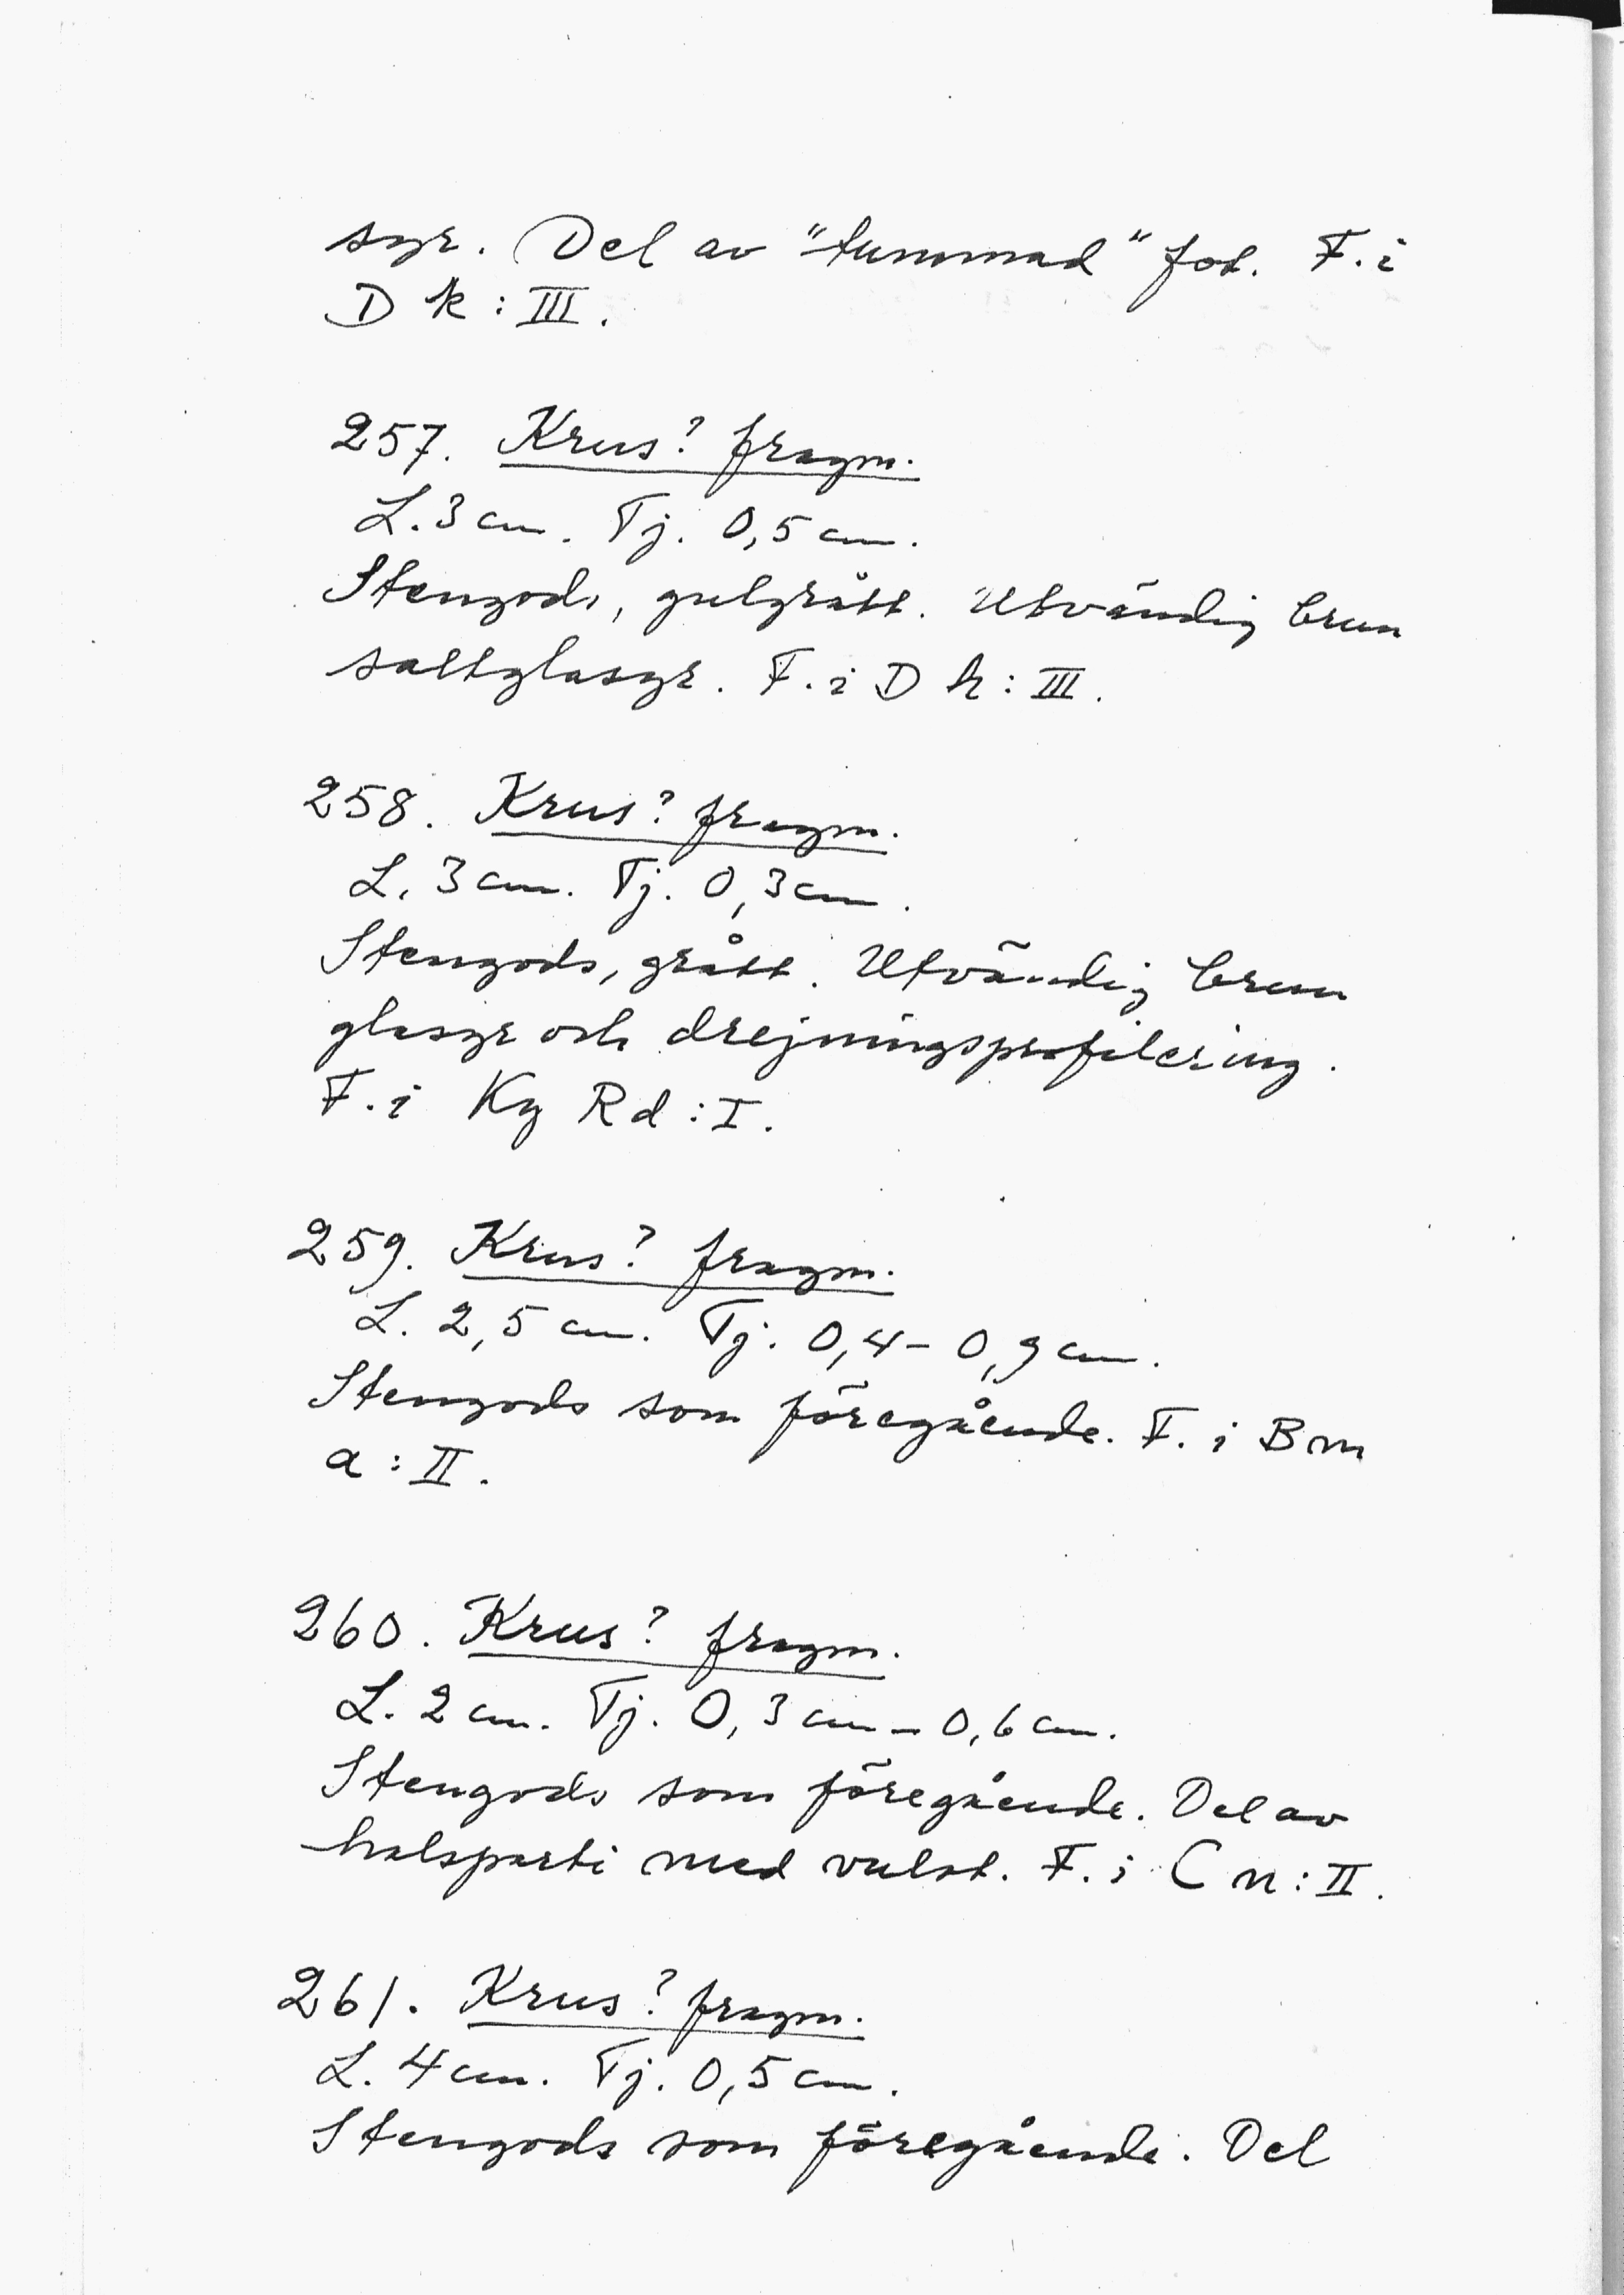 syr. Del av "tummad" fot. F. i
D k : III.
257. Krus? fragm.
L. 3 cm. Tj. 0,5 cm.
Stengods, gulgrått. Utvändig brun
saltglasyr. F. i D h : III.
258. Krus? fragm.
L. 3 cm. Tj. 0,3 cm.
Stengods, grått. Utvändig brun
glasyr och drejningsprofilering.
F. i Kg Rd : I.
259. Krus? fragm.
L. 2,5 cm. Tj. 0,4 - 0,9 cm.
Stengods som föregående. F. i B m
a : II.
260. Krus? fragm.
L. 2 cm. Tj. 0,3 cm - 0,6 cm.
Stengods som föregående. Del av
halsparti med vulst. F. i C n : II.
261. Krus? fragm.
L. 4 cm. Tj. 0,5 cm.
Stengods som föregående. Del